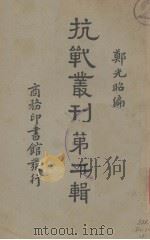 鄭光昭編
抗戰叢刊第輯
商務印書館發行